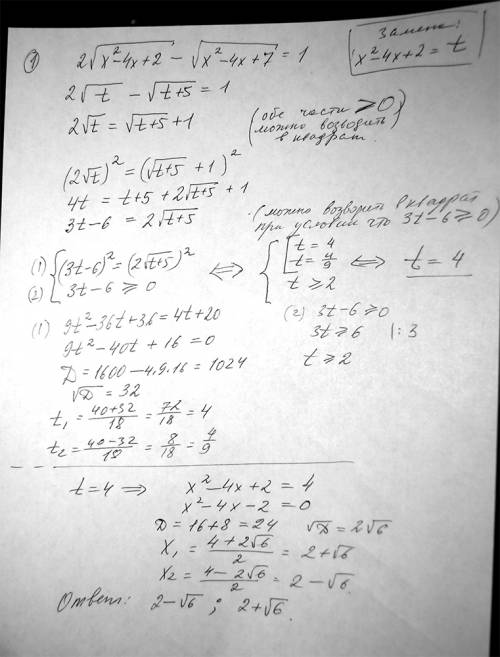 ① 2√(x²-4x+2) - √(x²-4x+7) = 1
Замена:
x²-4x+2 = t
2√t - √(t+5) = 1
2√t = √(t+5) + 1
(обе части ≥ 0
можно возводить
в квадрат.)
(2√t)² = (√(t+5) + 1)²
4t = t+5 + 2√(t+5) + 1
3t-6 = 2√(t+5)
(можно возводить в квадрат
при условии что 3t-6 ≥ 0)
(1) { (3t-6)² = (2√(t+5))²
(2) { 3t-6 ≥ 0
⇔ { [ t = 4
t = 4/9
t ≥ 2
⇔ t = 4
(1) 9t²-36t+36 = 4t+20
9t²-40t+16 = 0
D = 1600-4.9.16 = 1024
√D = 32
t₁ = (40+32)/18 = 72/18 = 4
t₂ = (40-32)/18 = 8/18 = 4/9
(2) 3t-6 ≥ 0
3t ≥ 6 |:3
t ≥ 2
t=4 ⇒ x²-4x+2 = 4
x²-4x-2 = 0
D = 16+8 = 24 √D = 2√6
x₁ = (4+2√6)/2 = 2+√6
x₂ = (4-2√6)/2 = 2-√6.
Ответ: 2-√6 ; 2+√6.